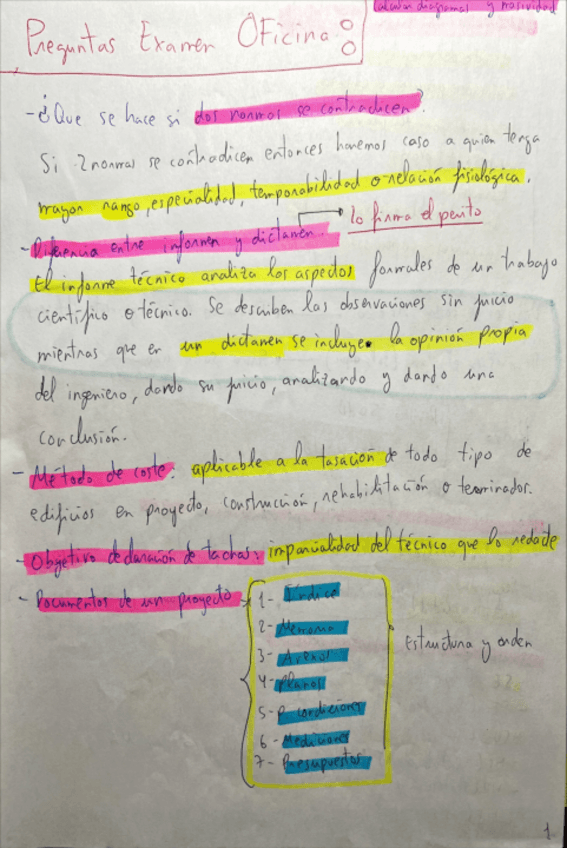 calcular diagramas y masividad
Preguntas Examen Oficina:
- ¿Que se hace si dos normas se contradicen?
Si 2 normas se contradicen entonces haremos caso a quien tenga
mayor rango, especialidad, temporabilidad o relación fisiológica.
- Diferencia entre informen y dictamen. → lo firma el perito
El informe técnico analiza los aspectos formales de un trabajo
científico o técnico. Se describen las observaciones sin juicio
mientras que en un dictamen se incluye la opinión propia
del ingeniero, dando su juicio, analizando y dando una
conclusión.
- Método de coste: aplicable a la tasación de todo tipo de
edificios en proyecto, construcción, rehabilitación o terminados.
- Objetivo declaración de tachas: imparcialidad del técnico que lo redacte
- Documentos de un proyecto
1- Índice
2- Memoria
3- Anexos
4- Planos
5- P. condiciones
6- Mediciones
7- Presupuestos
Estructura y orden
1